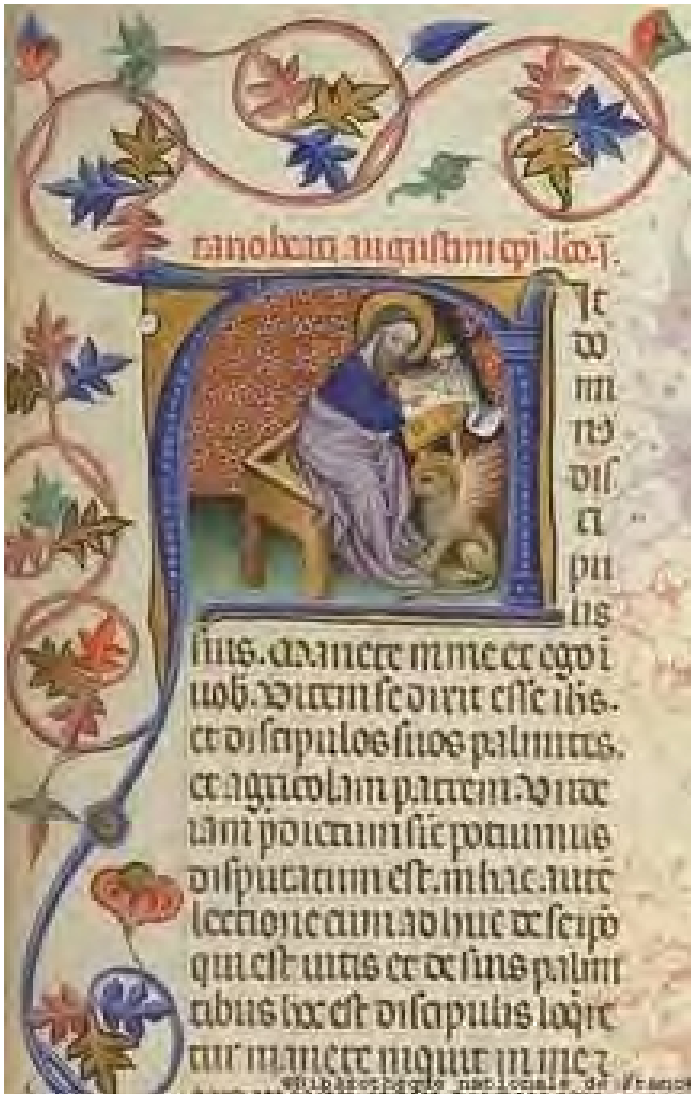 beati augustini epi.
it
do
mi
no
dis
ci
pu
lis
suis. Manete in me et ego i
uob. Vitem se dixit esse ihs.
et discipulos suos palmites.
et agricolam patrem. Vnde
iam disputatum est. in hac. aute
lectione cum adhuc de seipo
qui est uitis et de suis palmi
tibus hoc est discipulis loqre
tur manete inquit in me
©Bibliothèque nationale de France